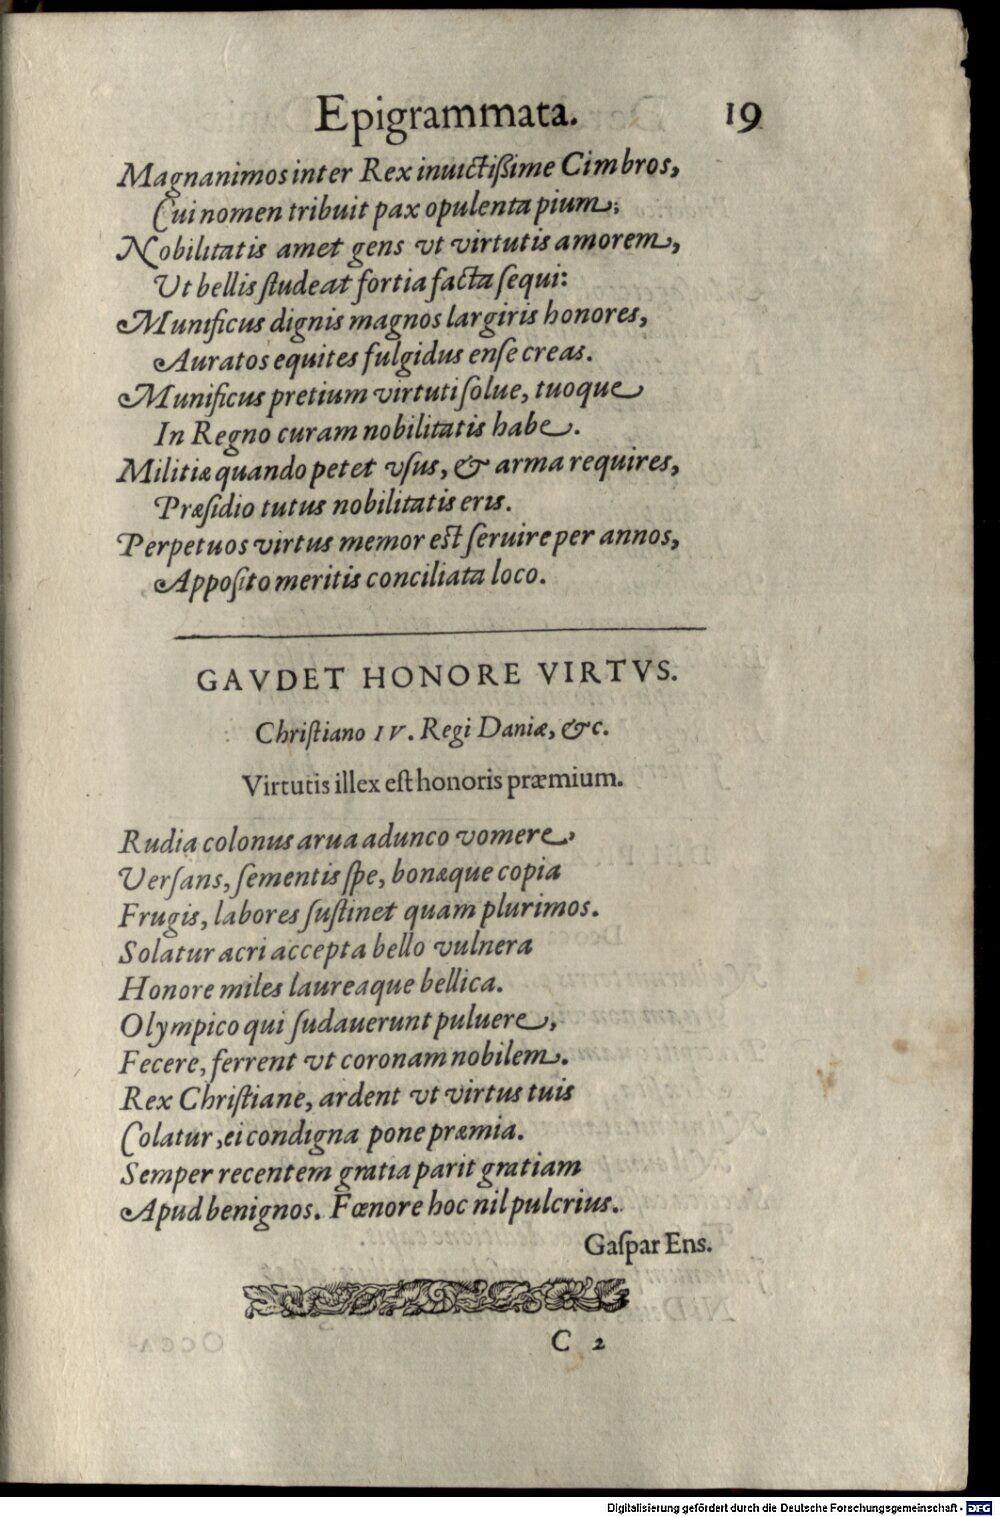 Epigrammata. 19
Magnanimos inter Rex inuictißime Cimbros,
Cui nomen tribuit pax opulenta pium;
Nobilitatis amet gens vt virtutis amorem,
Ut bellis ſtudeat fortia facta ſequi:
Munificus dignis magnos largiris honores,
Auratos equites fulgidus enſe creas.
Munificus pretium virtuti ſolue, tuoque
In Regno curam nobilitatis habe.
Militiæ quando petet vſus, & arma requires,
Præſidio tutus nobilitatis eris.
Perpetuos virtus memor eſt ſeruire per annos,
Appoſito meritis conciliata loco.
GAVDET HONORE VIRTVS.
Chriſtiano IV. Regi Daniæ, &c.
Virtutis illex eſt honoris præmium.
Rudia colonus arua adunco vomere
Verſans, ſementis ſpe, bonæque copia
Frugis, labores ſuſtinet quam plurimos.
Solatur acri accepta bello vulnera
Honore miles laureaque bellica.
Olympico qui ſudauerunt puluere,
Fecere, ferrent vt coronam nobilem.
Rex Chriſtiane, ardent vt virtus tuis
Colatur, ei condigna pone præmia.
Semper recentem gratia parit gratiam
Apud benignos. Fœnore hoc nil pulcrius.
Gaſpar Ens.
C 2
Digitalisierung gefördert durch die Deutsche Forschungsgemeinschaft - DFG